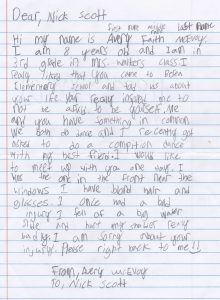 Dear, Nick Scott
first name middle last name
Hi my name is Avery Faith McEvoy.
I am 8 years old and I am in
3rd grade in Mrs. Walters class. I
Really liked that you came to
Elementery school and told us about
your life. You really inspired me to
not be afraid to be yourself. Me
and you have something in common
We both do dance and I recently got
asked to do a compition dance
with my best friend. I would like
to meet up with you one day. I
was the one in the front near the
windows I have blond hair and
glasses. I once had a bad
injury I fell of a big water
slide and hurt my really
badly. I am sorry about your
injury. Please right back to me!!
From, Avery McEvoy
To, Nick Scott